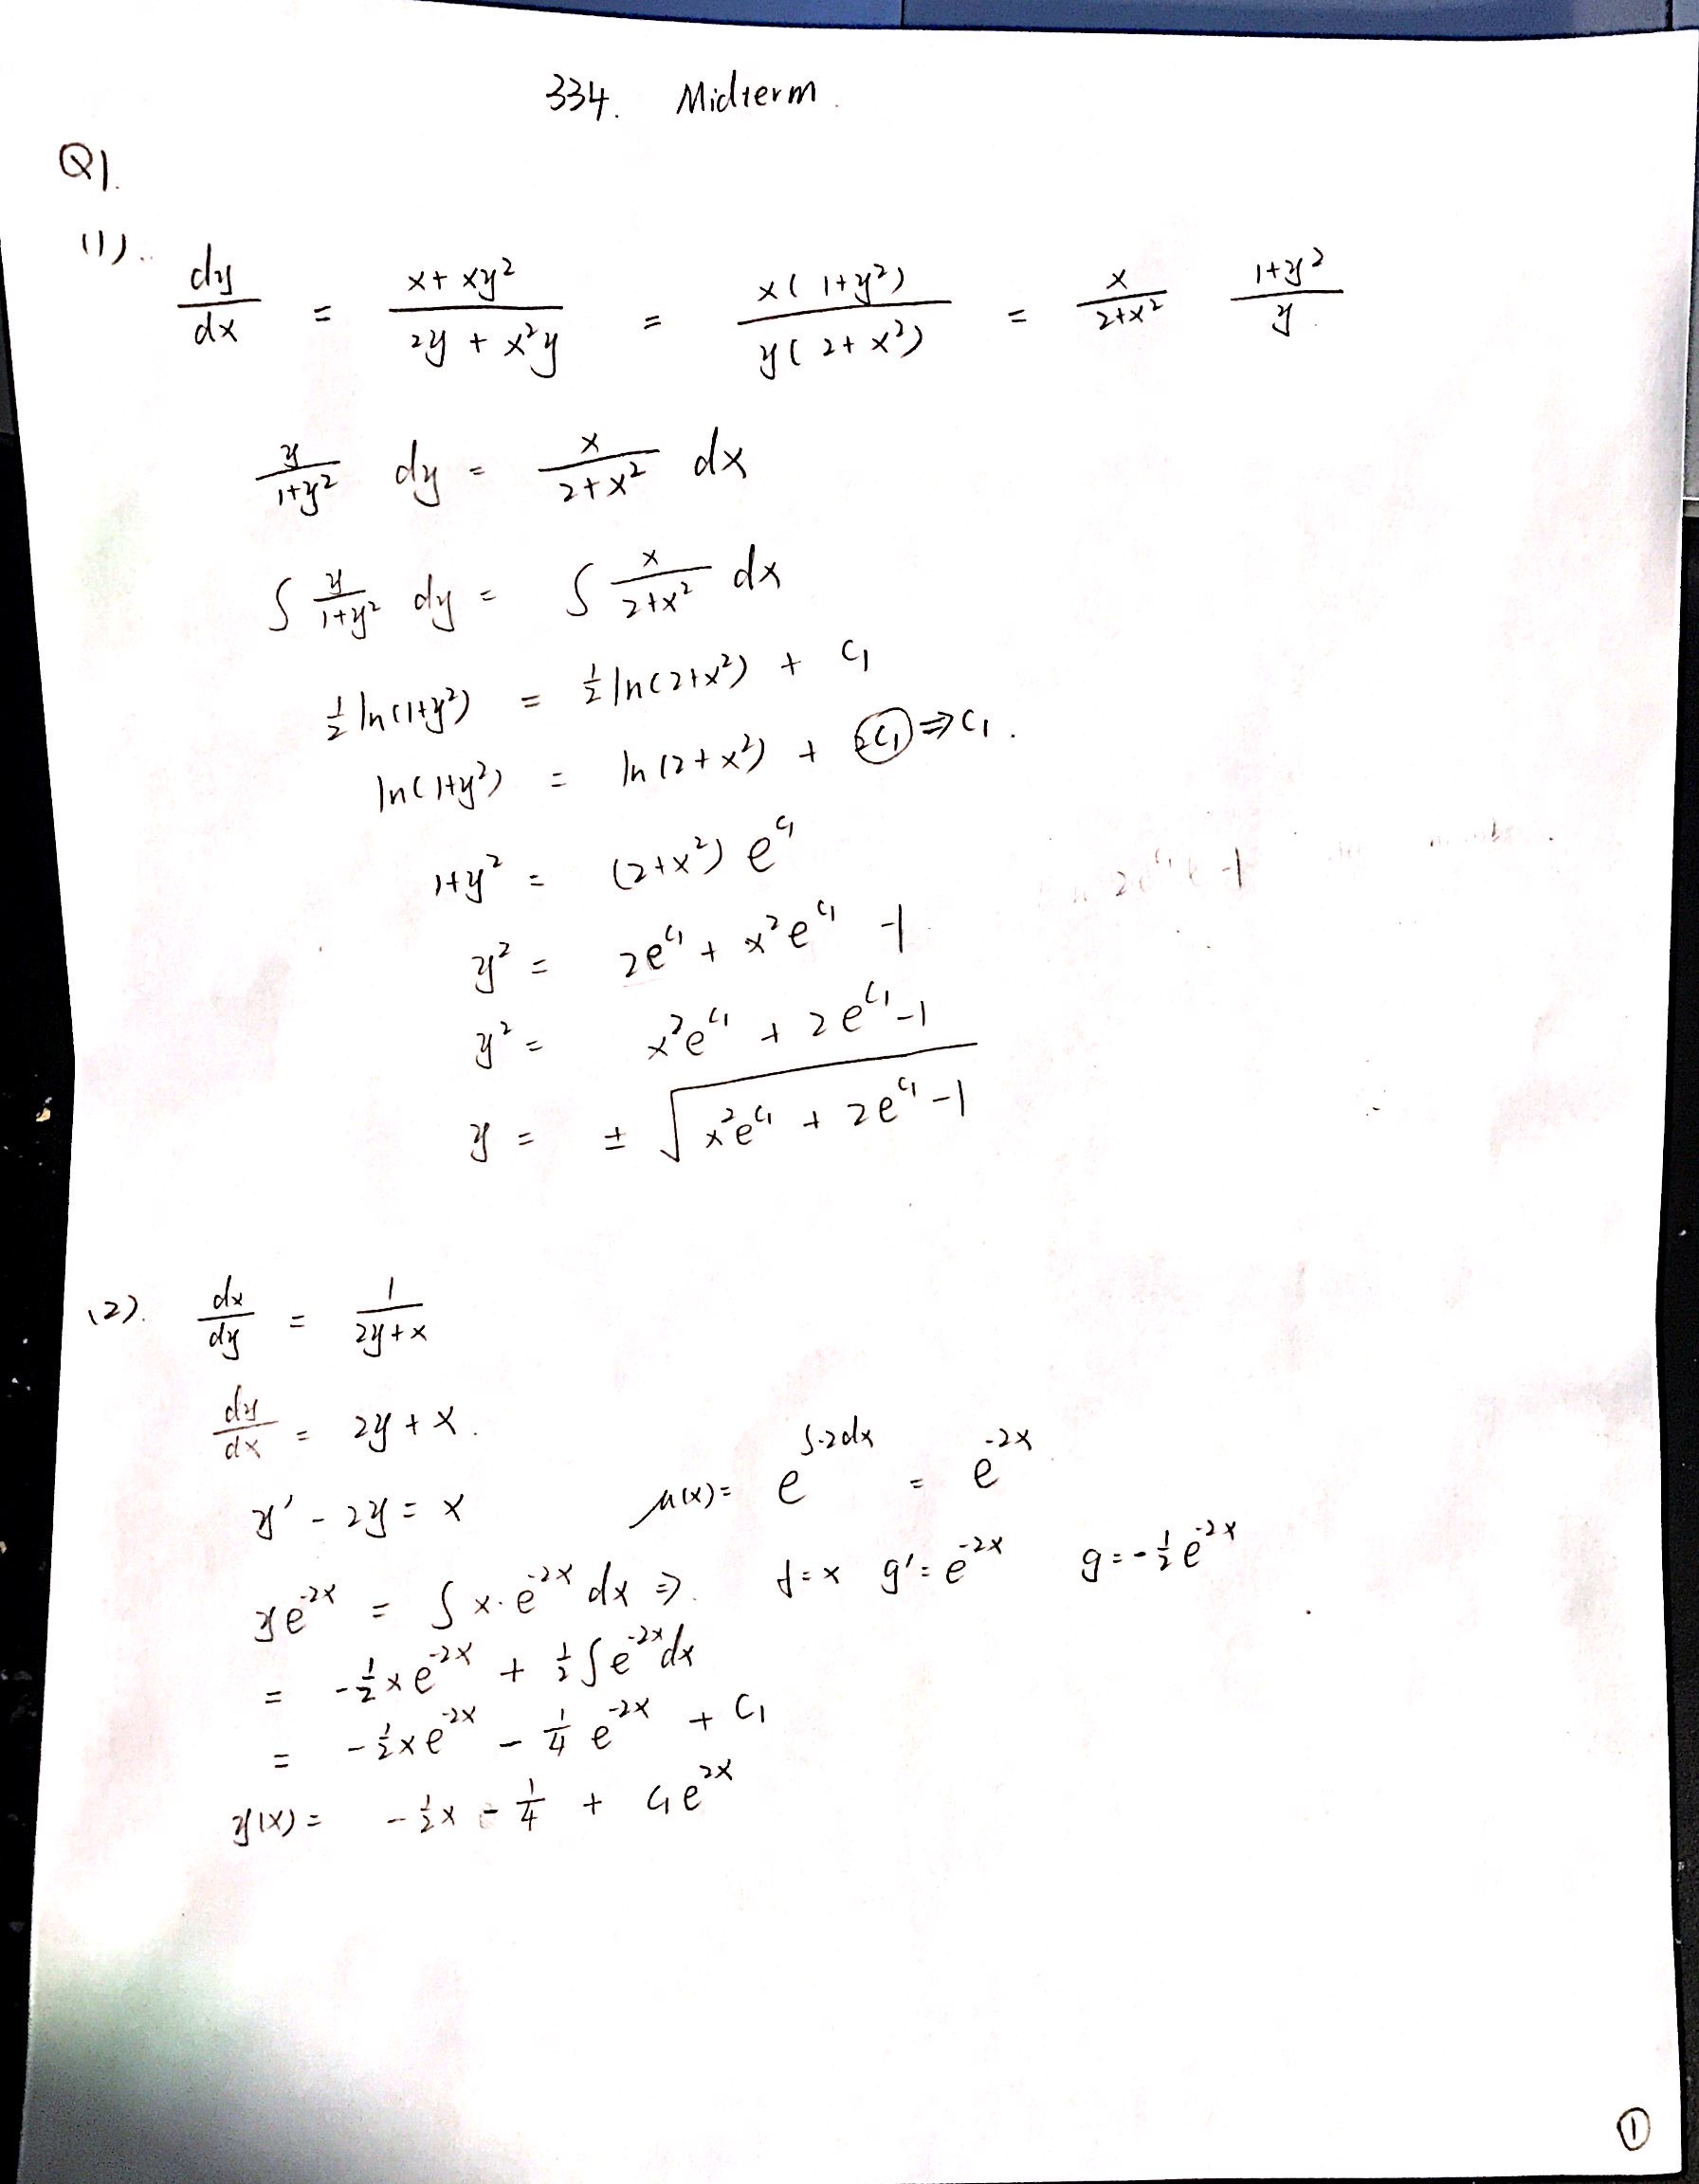 334. Midterm.
Q1.
(1). dy/dx = (x + xy²)/(2y + x²y) = x(1+y²)/(y(2+x²)) = x/(2+x²) (1+y²)/y.
y/(1+y²) dy = x/(2+x²) dx
∫ y/(1+y²) dy = ∫ x/(2+x²) dx
½ ln(1+y²) = ½ ln(2+x²) + C₁
ln(1+y²) = ln(2+x²) + 2C₁ ⇒ C₁.
1+y² = (2+x²) e^C₁
y² = 2e^C₁ + x²e^C₁ -1
y² = x²e^C₁ + 2e^C₁ -1
y = ± √(x²e^C₁ + 2e^C₁ -1)
(2). dx/dy = 1/(2y+x)
dy/dx = 2y + x.
y' - 2y = x μ(x) = e^(∫-2dx) = e^(-2x)
ye^(-2x) = ∫ x·e^(-2x) dx ⇒. f=x g'=e^(-2x) g=-½e^(-2x)
= -½xe^(-2x) + ½∫e^(-2x)dx
= -½xe^(-2x) - ¼e^(-2x) + C₁
y(x) = -½x - ¼ + C₁e^(2x)
①